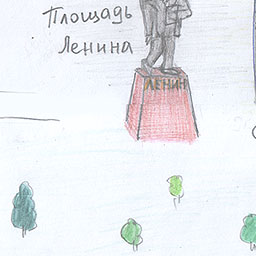 Площадь
Ленина
ЛЕНИН